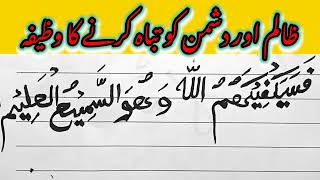 ظالم اور دشمن کو تباہ کرنے کا وظیفہ
فَسَيَكْفِيْكَهُمُ اللّٰهُ وَهُوَ السَّمِيْعُ الْعَلِيْمُ